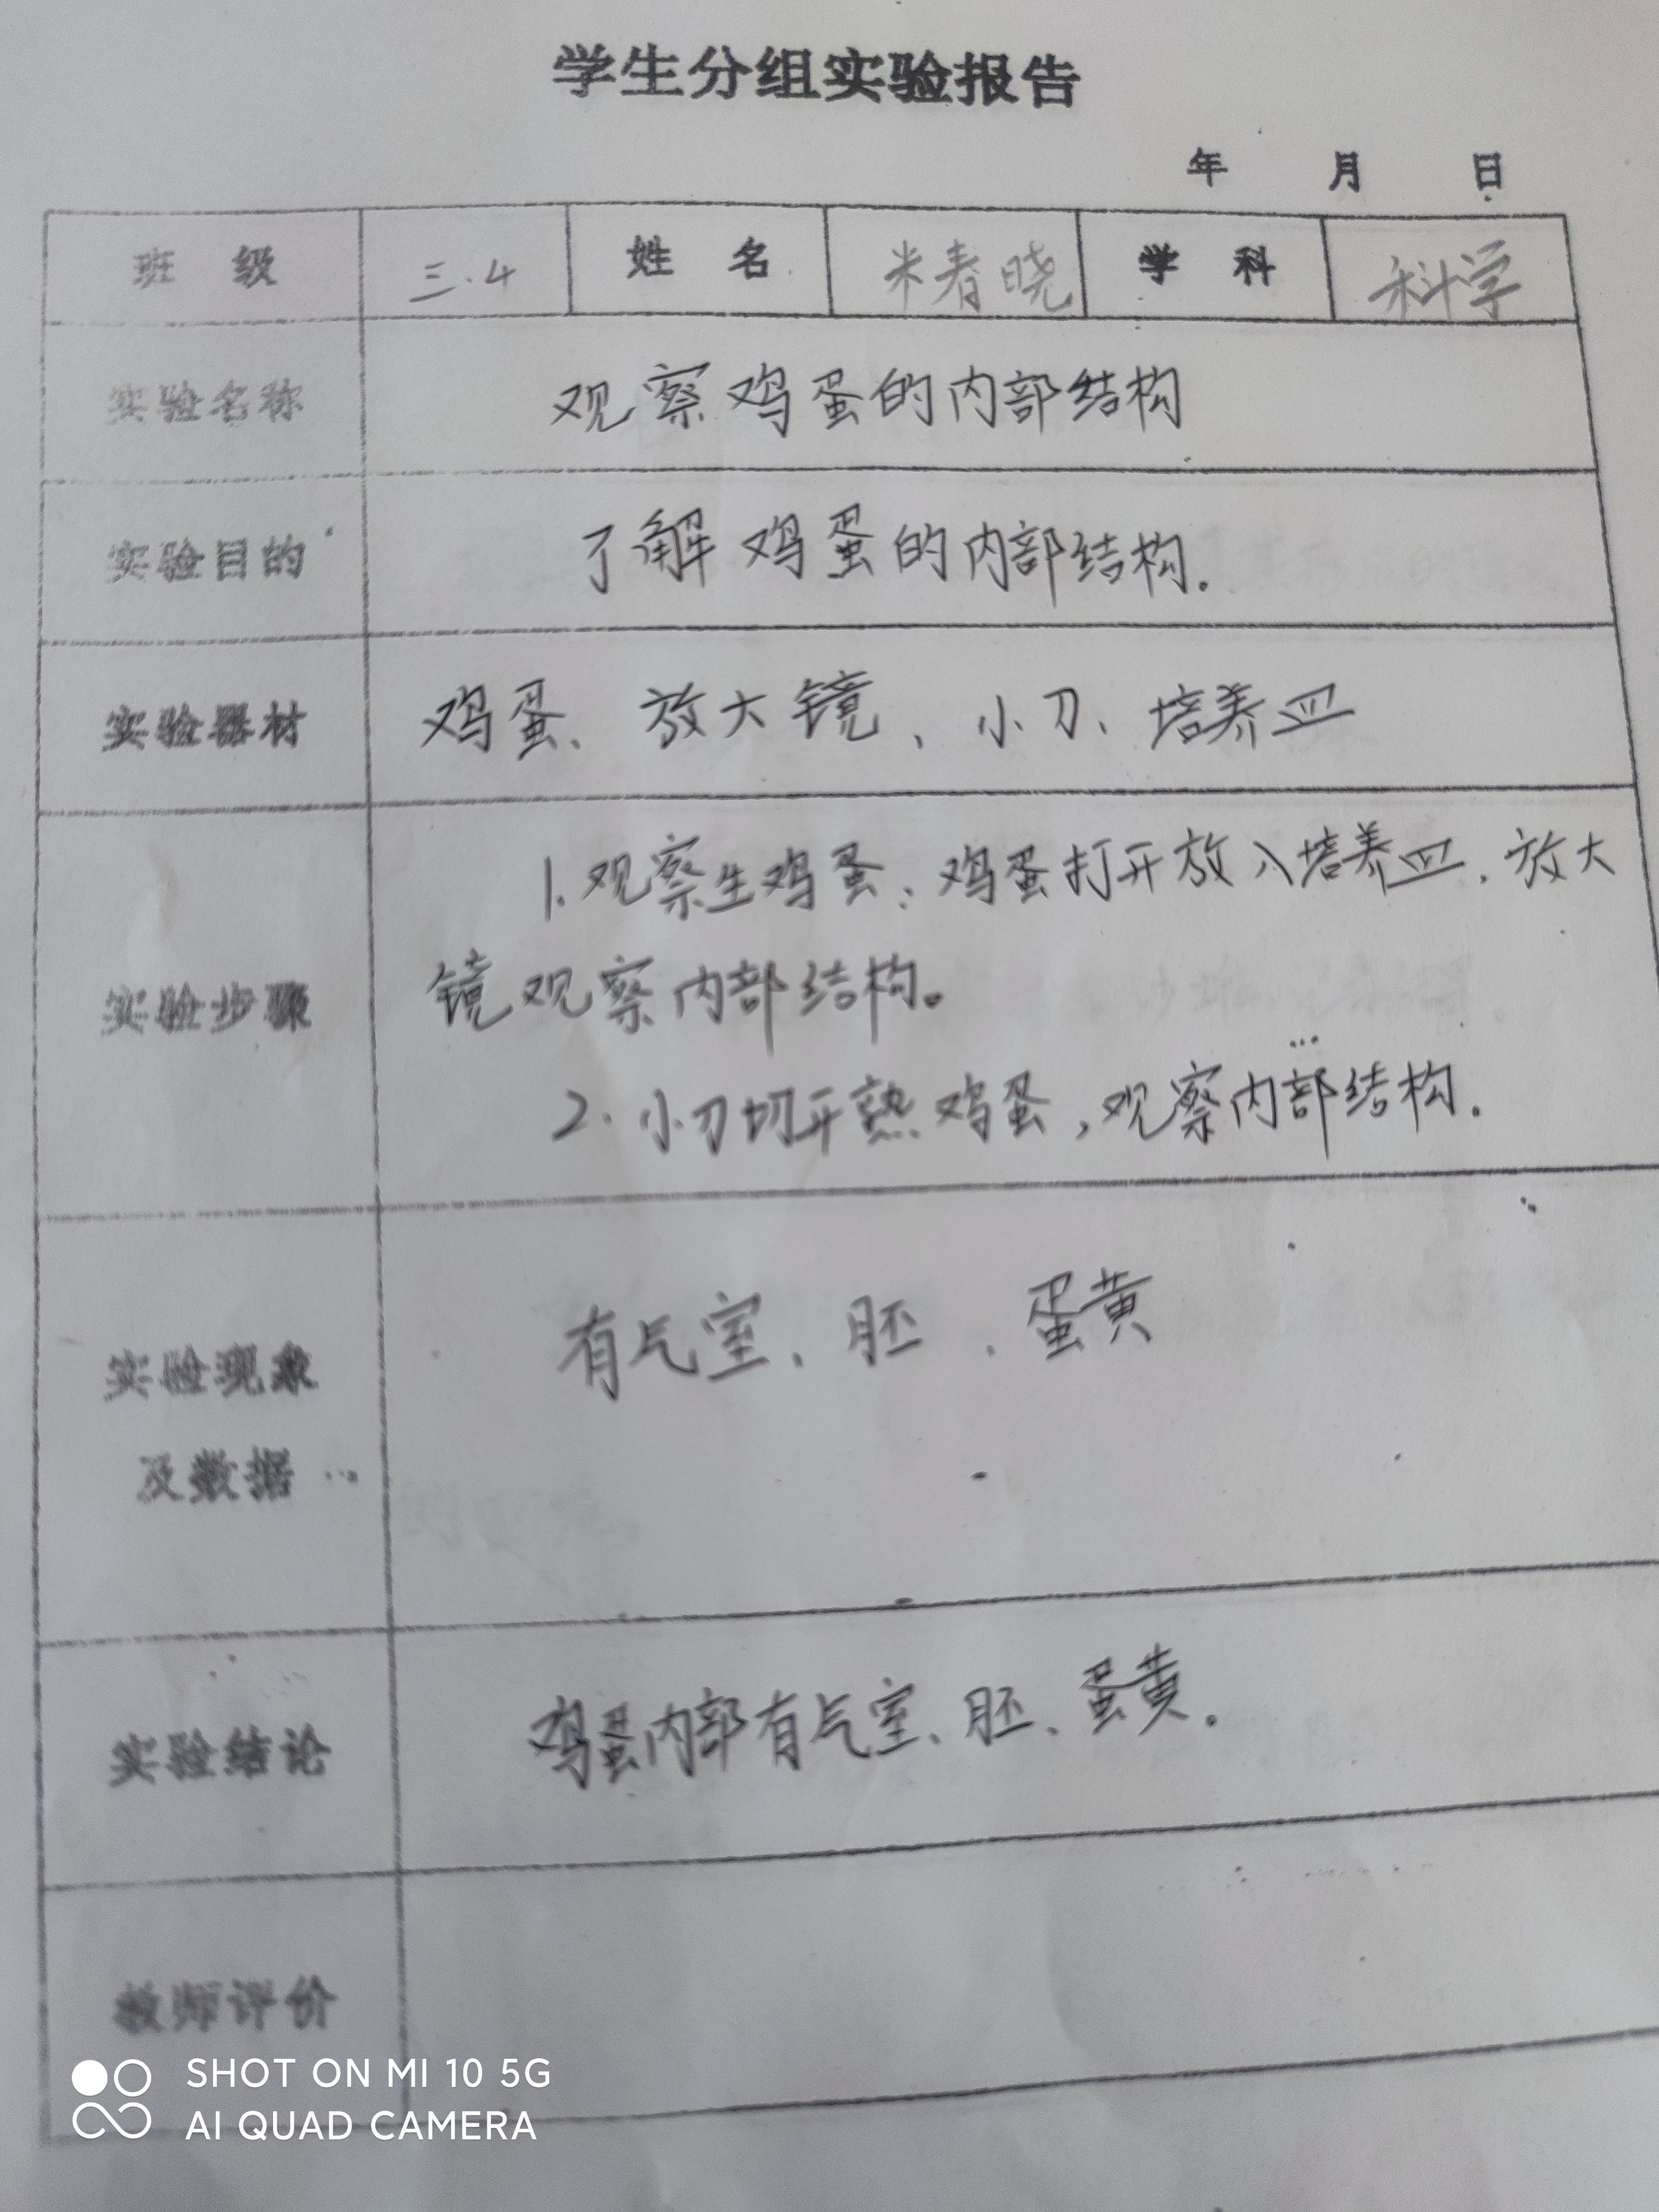 学生分组实验报告
年 月 日
班 级 三.4 姓 名 米春晓 学 科 科学
实验名称 观察鸡蛋的内部结构
实验目的 了解鸡蛋的内部结构.
实验器材 鸡蛋、放大镜、小刀、培养皿
实验步骤
1.观察生鸡蛋:鸡蛋打开放入培养皿.放大
镜观察内部结构。
2.小刀切开熟鸡蛋,观察内部结构.
实验现象
及数据
有气室、胚、蛋黄
实验结论 鸡蛋内部有气室、胚、蛋黄.
教师评价
SHOT ON MI 10 5G
AI QUAD CAMERA